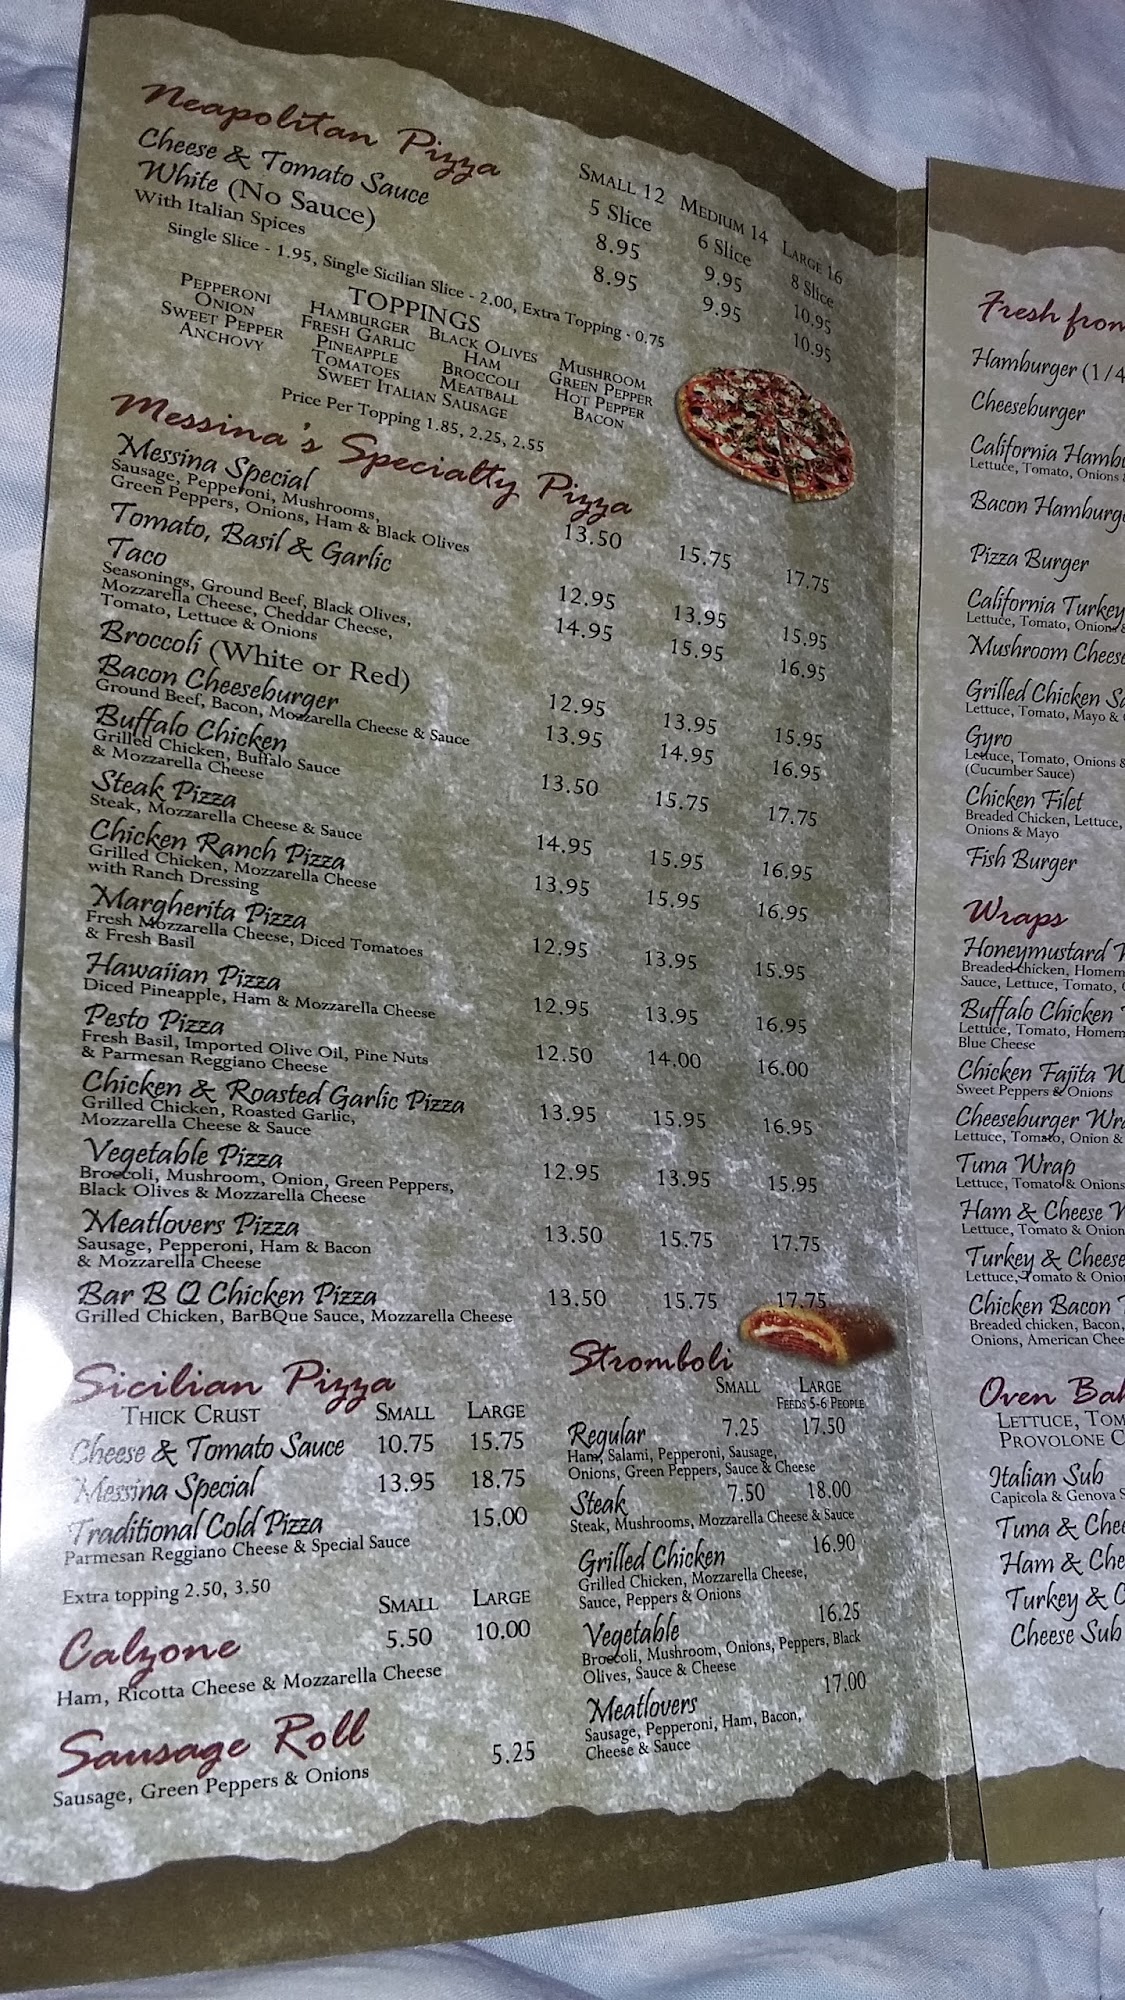 Neapolitan Pizza
SMALL 12 MEDIUM 14 LARGE 16
5 Slice 6 Slice 8 Slice
Cheese & Tomato Sauce 8.95 9.95 10.95
White (No Sauce) 8.95 9.95 10.95
With Italian Spices
Single Slice - 1.95, Single Sicilian Slice - 2.00, Extra Topping - 0.75
TOPPINGS
PEPPERONI HAMBURGER BLACK OLIVES MUSHROOM
ONION FRESH GARLIC HAM GREEN PEPPER
SWEET PEPPER PINEAPPLE BROCCOLI HOT PEPPER
ANCHOVY TOMATOES MEATBALL BACON
SWEET ITALIAN SAUSAGE
Price Per Topping 1.85, 2.25, 2.55
Messina's Specialty Pizza
Messina Special 13.50 15.75 17.75
Sausage, Pepperoni, Mushrooms,
Green Peppers, Onions, Ham & Black Olives
Tomato, Basil & Garlic 12.95 13.95 15.95
Taco 14.95 15.95 16.95
Seasonings, Ground Beef, Black Olives,
Mozzarella Cheese, Cheddar Cheese,
Tomato, Lettuce & Onions
Broccoli (White or Red) 12.95 13.95 15.95
Bacon Cheeseburger 13.95 14.95 16.95
Ground Beef, Bacon, Mozzarella Cheese & Sauce
Buffalo Chicken 13.50 15.75 17.75
Grilled Chicken, Buffalo Sauce
& Mozzarella Cheese
Steak Pizza 14.95 15.95 16.95
Steak, Mozzarella Cheese & Sauce
Chicken Ranch Pizza 13.95 15.95 16.95
Grilled Chicken, Mozzarella Cheese
with Ranch Dressing
Margherita Pizza 12.95 13.95 15.95
Fresh Mozzarella Cheese, Diced Tomatoes
& Fresh Basil
Hawaiian Pizza 12.95 13.95 16.95
Diced Pineapple, Ham & Mozzarella Cheese
Pesto Pizza 12.50 14.00 16.00
Fresh Basil, Imported Olive Oil, Pine Nuts
& Parmesan Reggiano Cheese
Chicken & Roasted Garlic Pizza 13.95 15.95 16.95
Grilled Chicken, Roasted Garlic,
Mozzarella Cheese & Sauce
Vegetable Pizza 12.95 13.95 15.95
Broccoli, Mushroom, Onion, Green Peppers,
Black Olives & Mozzarella Cheese
Meatlovers Pizza 13.50 15.75 17.75
Sausage, Pepperoni, Ham & Bacon
& Mozzarella Cheese
Bar B Q Chicken Pizza 13.50 15.75 17.75
Grilled Chicken, BarBQue Sauce, Mozzarella Cheese
Sicilian Pizza
THICK CRUST SMALL LARGE
Cheese & Tomato Sauce 10.75 15.75
Messina Special 13.95 18.75
Traditional Cold Pizza 15.00
Parmesan Reggiano Cheese & Special Sauce
Extra topping 2.50, 3.50
SMALL LARGE
Calzone 5.50 10.00
Ham, Ricotta Cheese & Mozzarella Cheese
Sausage Roll 5.25
Sausage, Green Peppers & Onions
Stromboli
SMALL LARGE
FEEDS 5-6 PEOPLE
Regular 7.25 17.50
Ham, Salami, Pepperoni, Sausage,
Onions, Green Peppers, Sauce & Cheese
Steak 7.50 18.00
Steak, Mushrooms, Mozzarella Cheese & Sauce
Grilled Chicken 16.90
Grilled Chicken, Mozzarella Cheese,
Sauce, Peppers & Onions
Vegetable 16.25
Broccoli, Mushroom, Onions, Peppers, Black
Olives, Sauce & Cheese
Meatlovers 17.00
Sausage, Pepperoni, Ham, Bacon,
Cheese & Sauce
Fresh
Hamburger (1/4
Cheeseburger
California
Lettuce, Tomato, Onions
Bacon
Pizza Burger
California Turkey
Lettuce, Tomato, Onions
Mushroom
Grilled Chicken
Lettuce, Tomato, Mayo &
Gyro
Lettuce, Tomato, Onions &
(Cucumber Sauce)
Chicken Filet
Breaded Chicken, Lettuce,
Onions & Mayo
Fish Burger
Wraps
Honeymustard
Breaded chicken,
Sauce, Lettuce, Tomato,
Buffalo Chicken
Lettuce, Tomato,
Blue Cheese
Chicken Fajita
Sweet Peppers & Onions
Cheeseburger
Lettuce, Tomato, Onion &
Tuna Wrap
Lettuce, Tomato & Onions
Ham & Cheese
Lettuce, Tomato & Onion
Turkey & Cheese
Lettuce, Tomato &
Chicken Bacon
Breaded chicken, Bacon,
Onions, American
Oven
LETTUCE,
PROVOLONE
Italian Sub
Capicola & Genova
Tuna &
Ham &
Turkey &
Cheese Sub